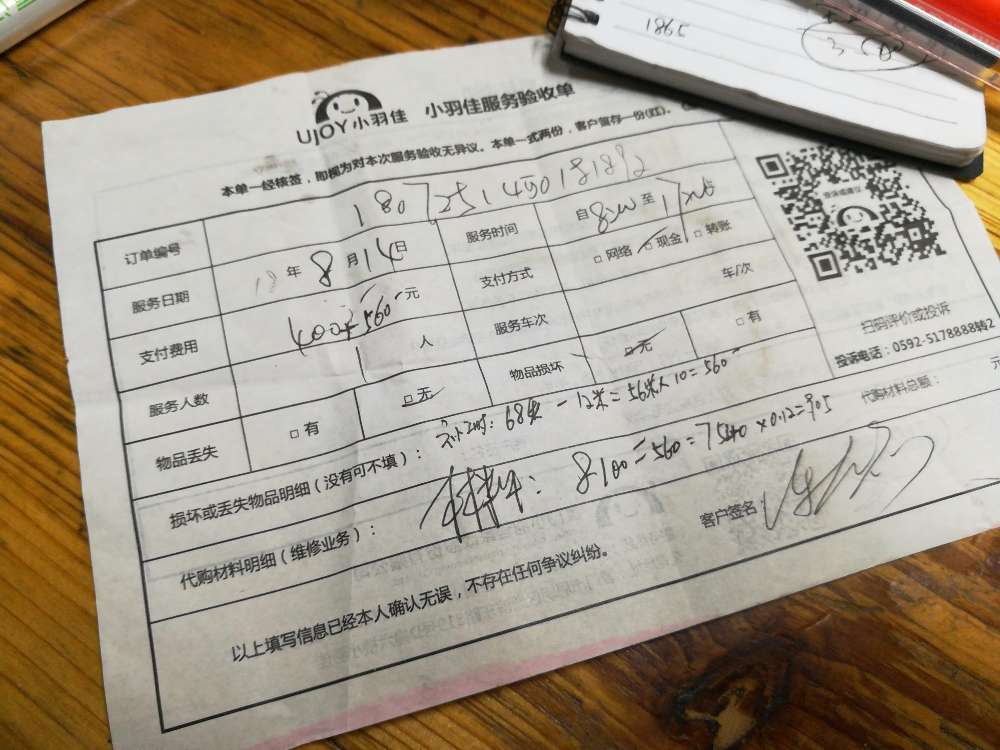 1865
UJOY小羽佳 小羽佳服务验收单
本单一经核签，即视为对本次服务验收无异议。本单一式两份，客户留存一份(红)。
订单编号
服务日期 年 8 月 14 日 服务时间 自 8:00 至 17
支付费用 400+560 元 支付方式 □ 网络 □ 现金 □ 转账
服务人数 1 人 服务车次 车/次
物品丢失 □ 有 □ 无 物品损坏 □ 无 □ 有
损坏或丢失物品明细（没有可不填）： 68米-12米=56米×10=560
代购材料明细（维修业务）： 8100-560=7540×0.12=905 代购材料总额： 元
客户签名
以上填写信息已经本人确认无误，不存在任何争议纠纷。
扫码评价或投诉
投诉电话：0592-5178888转2